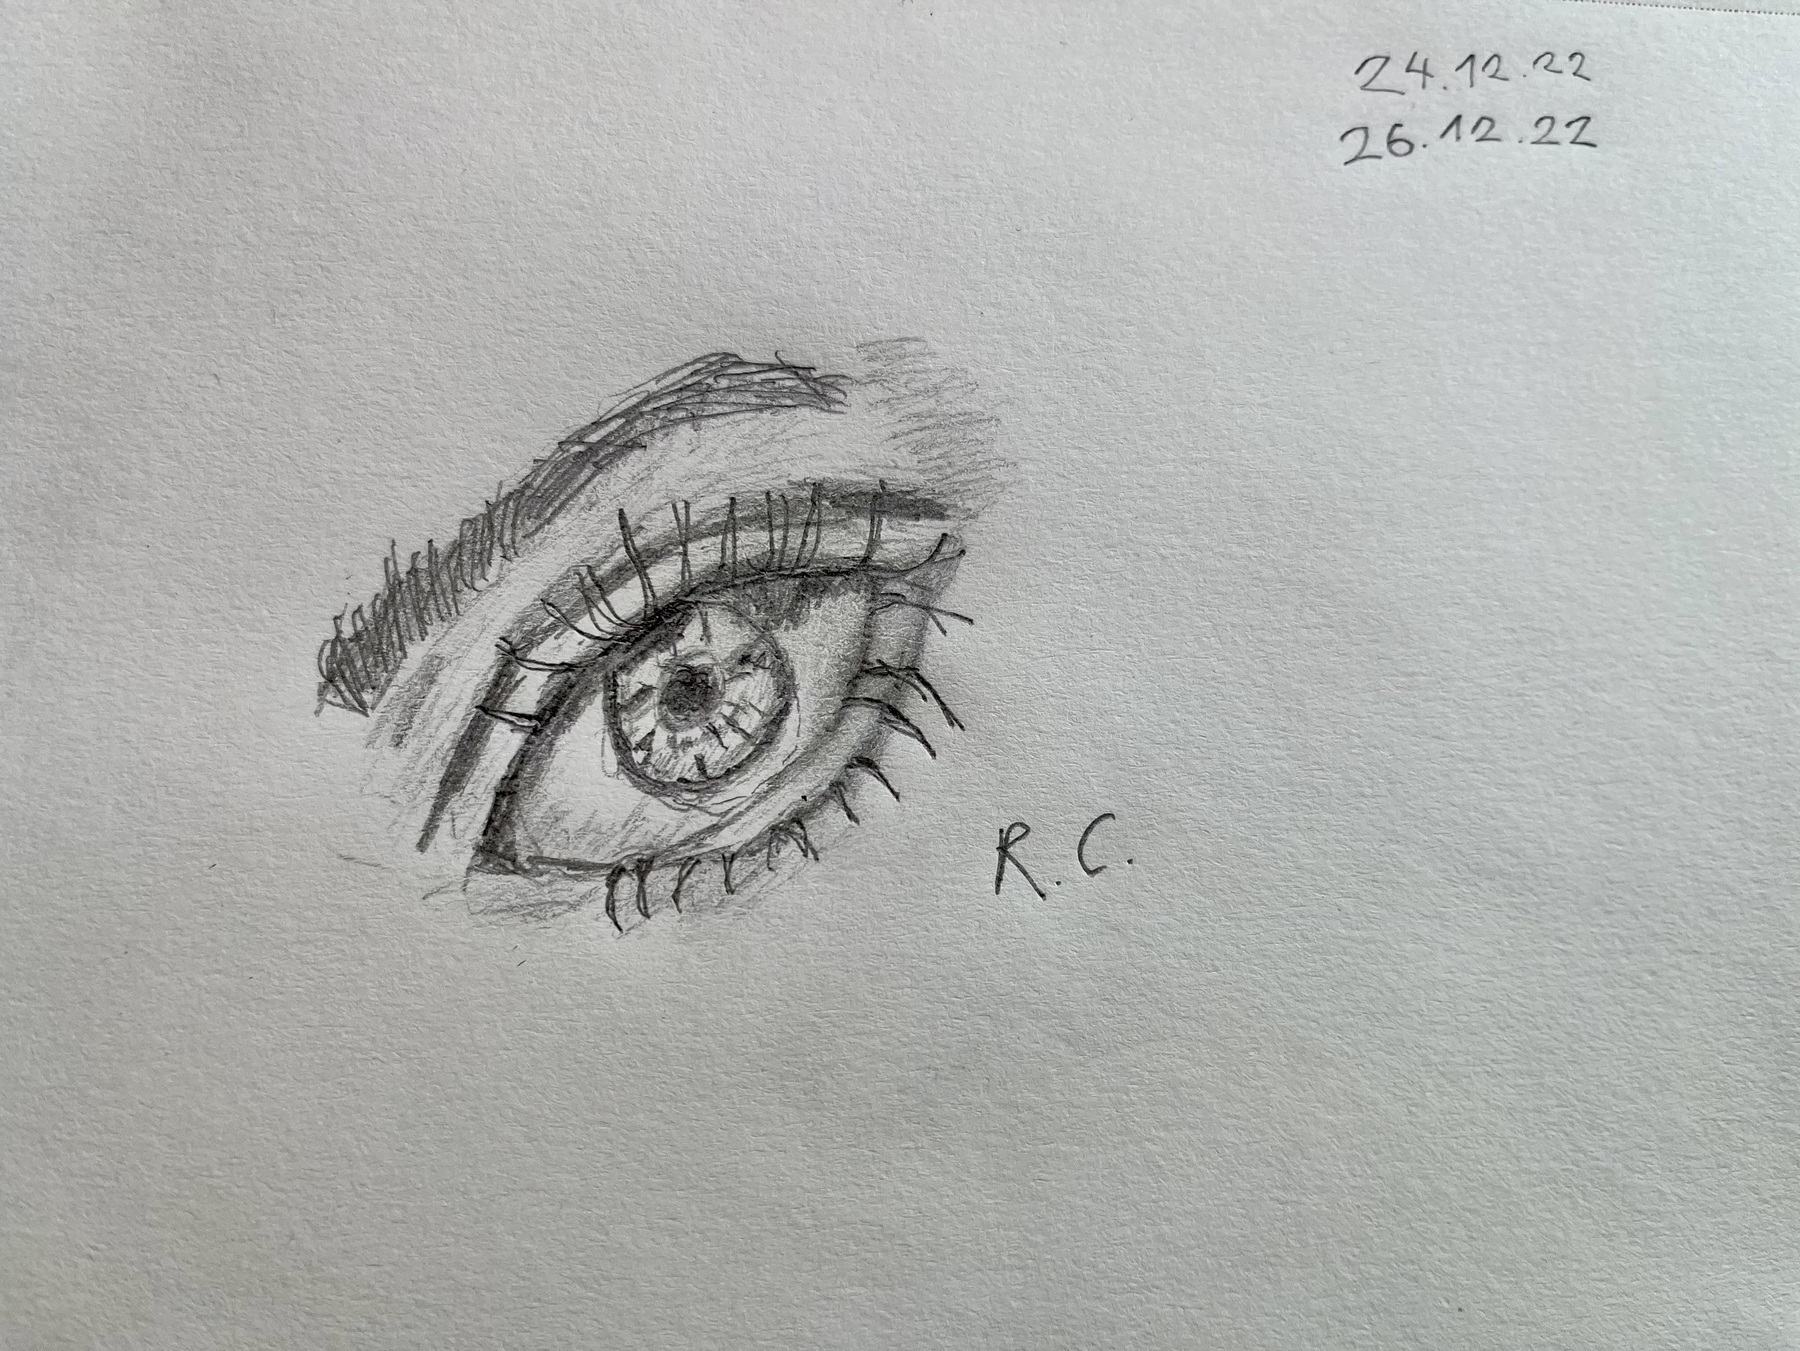 24.12.22
26.12.22
R.C.